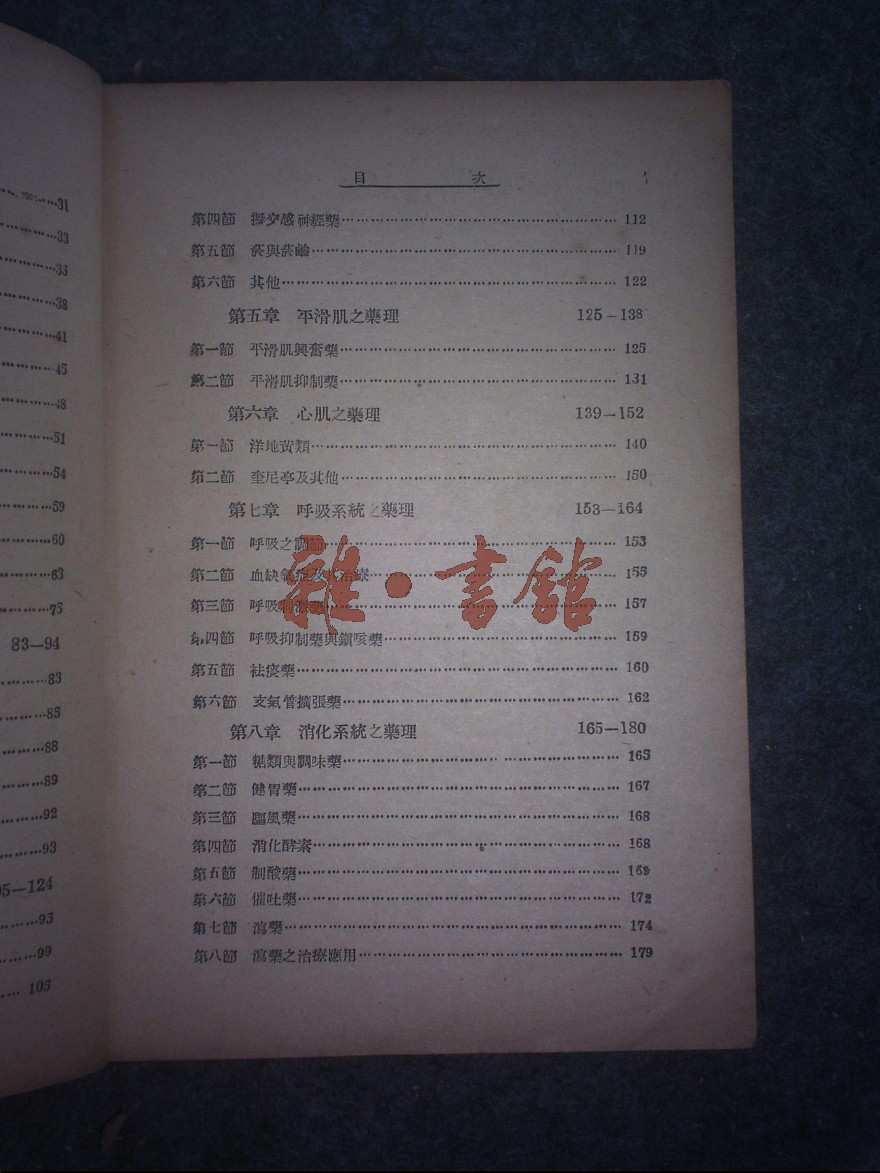 31
33
35
38
41
45
48
51
54
59
60
63
75
83—94
83
85
88
89
92
93
95—124
95
99
103
目 次
第四節 擬交感神經藥 112
第五節 菸與菸鹼 119
第六節 其他 122
第五章 平滑肌之藥理 125—138
第一節 平滑肌興奮藥 125
第二節 平滑肌抑制藥 131
第六章 心肌之藥理 139—152
第一節 洋地黃類 140
第二節 奎尼亭及其他 150
第七章 呼吸系統之藥理 153—164
第一節 呼吸之調節 153
第二節 血缺氧症及其治療 155
第三節 呼吸刺激藥 157
第四節 呼吸抑制藥與鎮咳藥 159
第五節 祛痰藥 160
第六節 支氣管擴張藥 162
第八章 消化系統之藥理 165—180
第一節 糖類與調味藥 165
第二節 健胃藥 167
第三節 驅風藥 168
第四節 消化酵素 168
第五節 制酸藥 169
第六節 催吐藥 172
第七節 瀉藥 174
第八節 瀉藥之治療應用 179
雜·書館